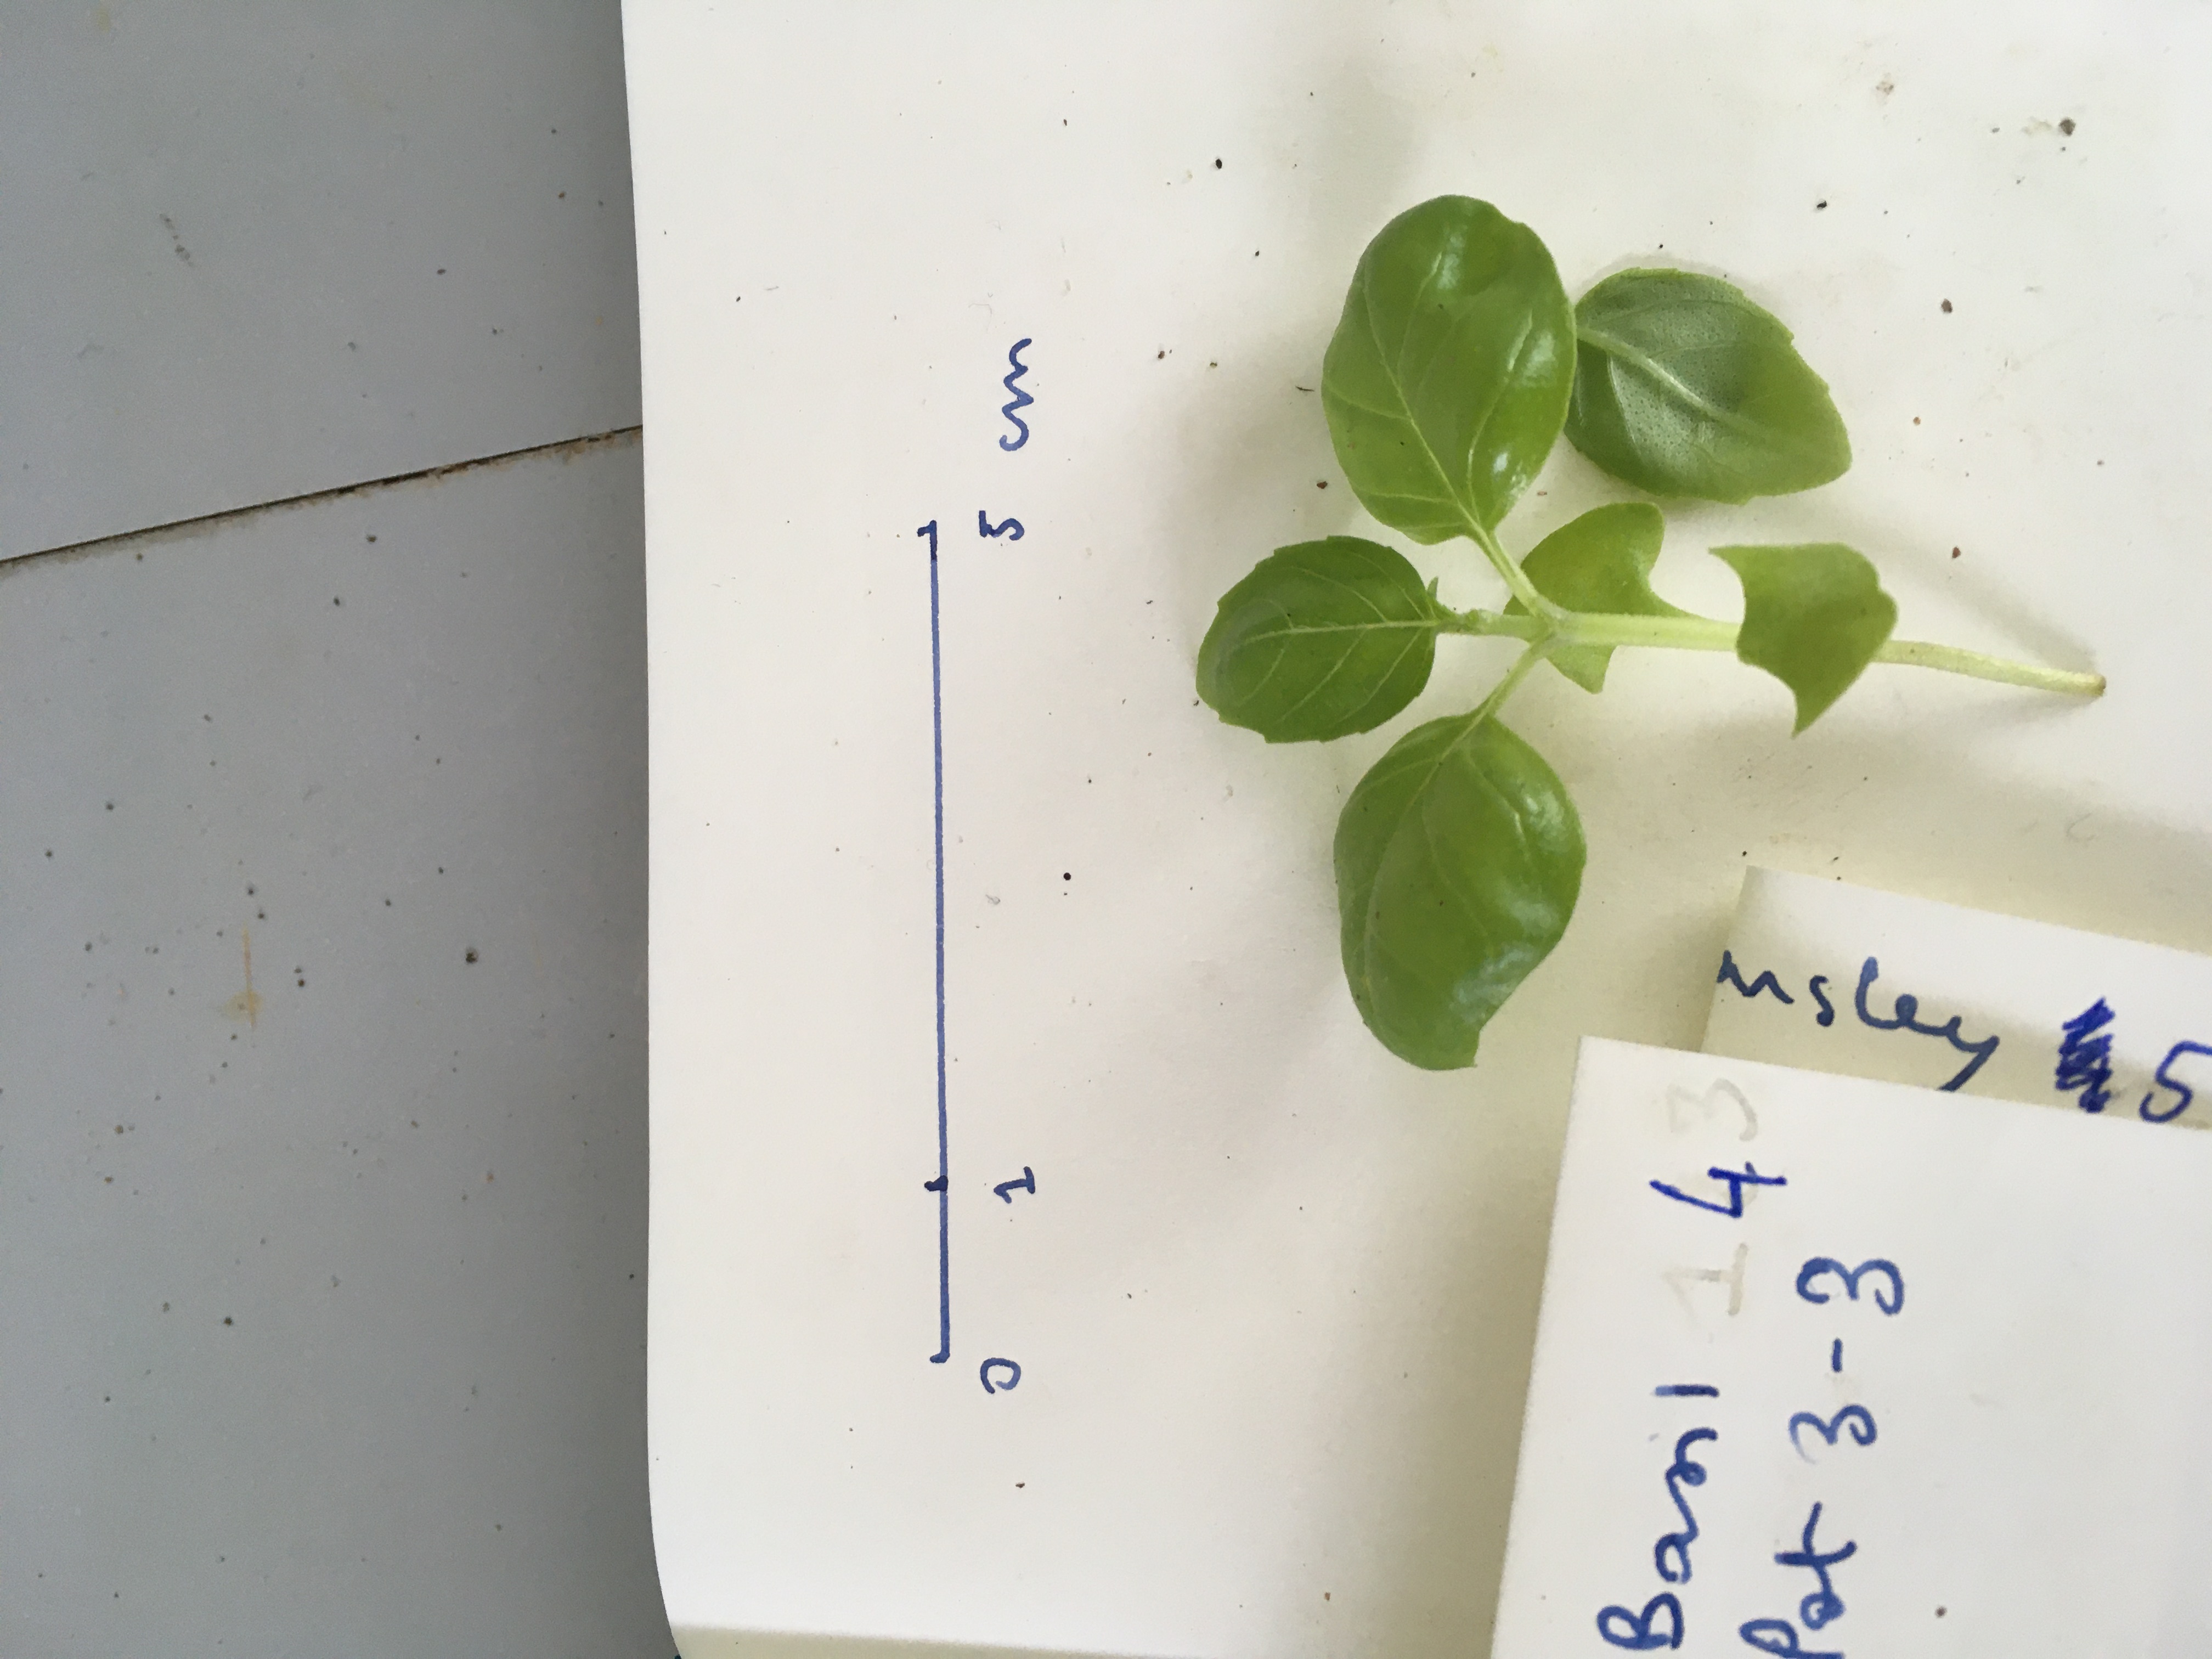 0 1 5 cm
Basil 1 4 3
Pot 3-3
nsley
5